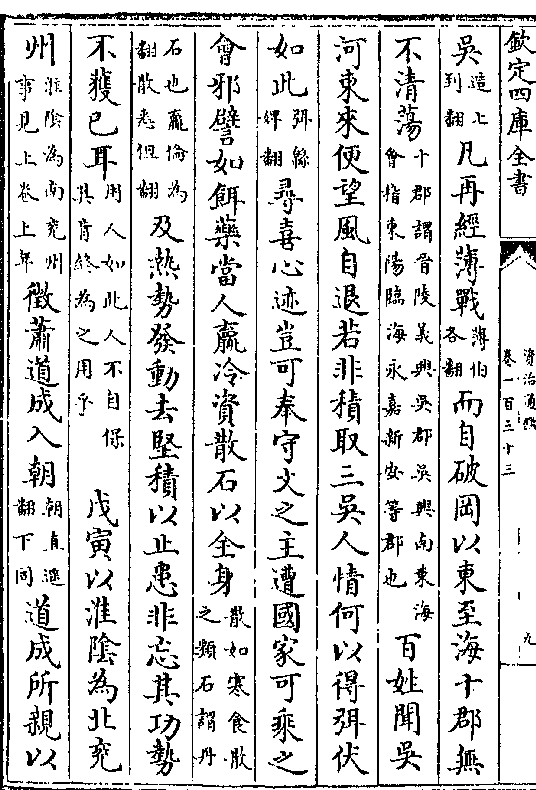 欽定四庫全書 資治通鑑 卷一百三十三 九
吳造七到翻凡再經薄戰薄伯各翻而自破岡以東至海十郡無
不清蕩十郡謂晉陵義興吳郡吳興南東海會稽東陽臨海永嘉新安等郡也百姓聞吳
河東來便望風自退若非積取三吳人情何以得弭伏
如此弭綿婢翻尋喜心迹豈可奉守文之主遭國家可乘之
會邪譬如餌藥當人羸冷資散石以全身散如寒食散之類石謂丹
石也羸倫為翻散悉但翻及熱勢發動去堅積以止患非忘其功勢
不獲已耳用人如此人不自保其肯終為之用乎 戊寅以淮隂為北兖
州淮隂為南兖州事見上卷上年徵蕭道成入朝朝直遥翻下同道成所親以